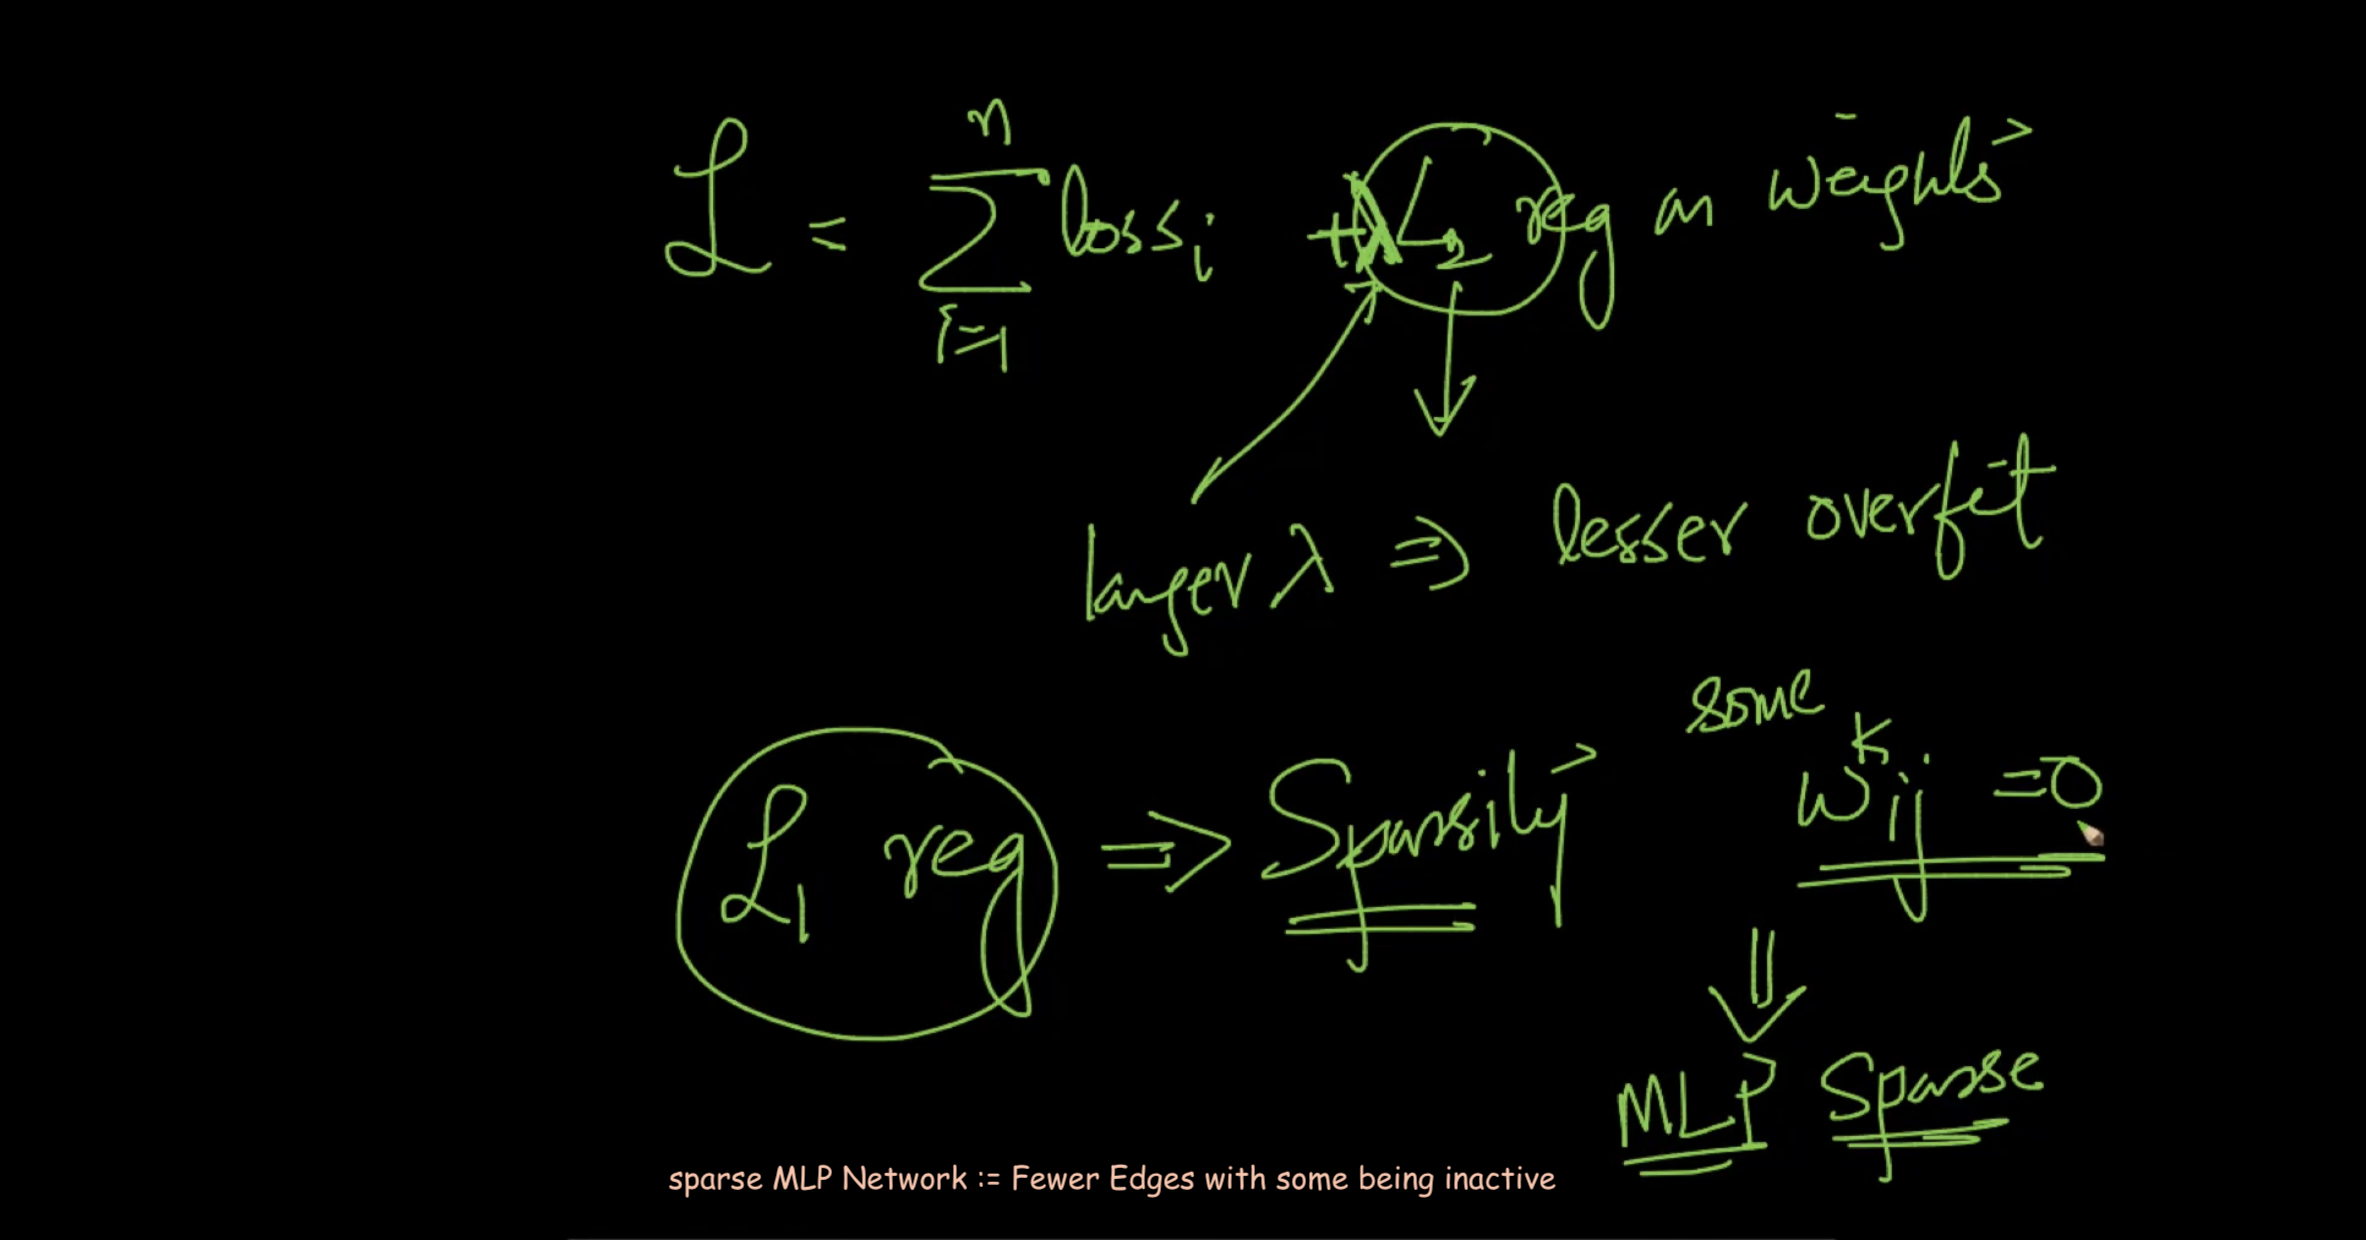 ℒ = n Σ i=1 loss i + λ L2 reg on weights
larger λ ⇒ lesser overfit
L1 reg ⇒ Sparsity some w k ij = 0
MLP Sparse
sparse MLP Network := Fewer Edges with some being inactive